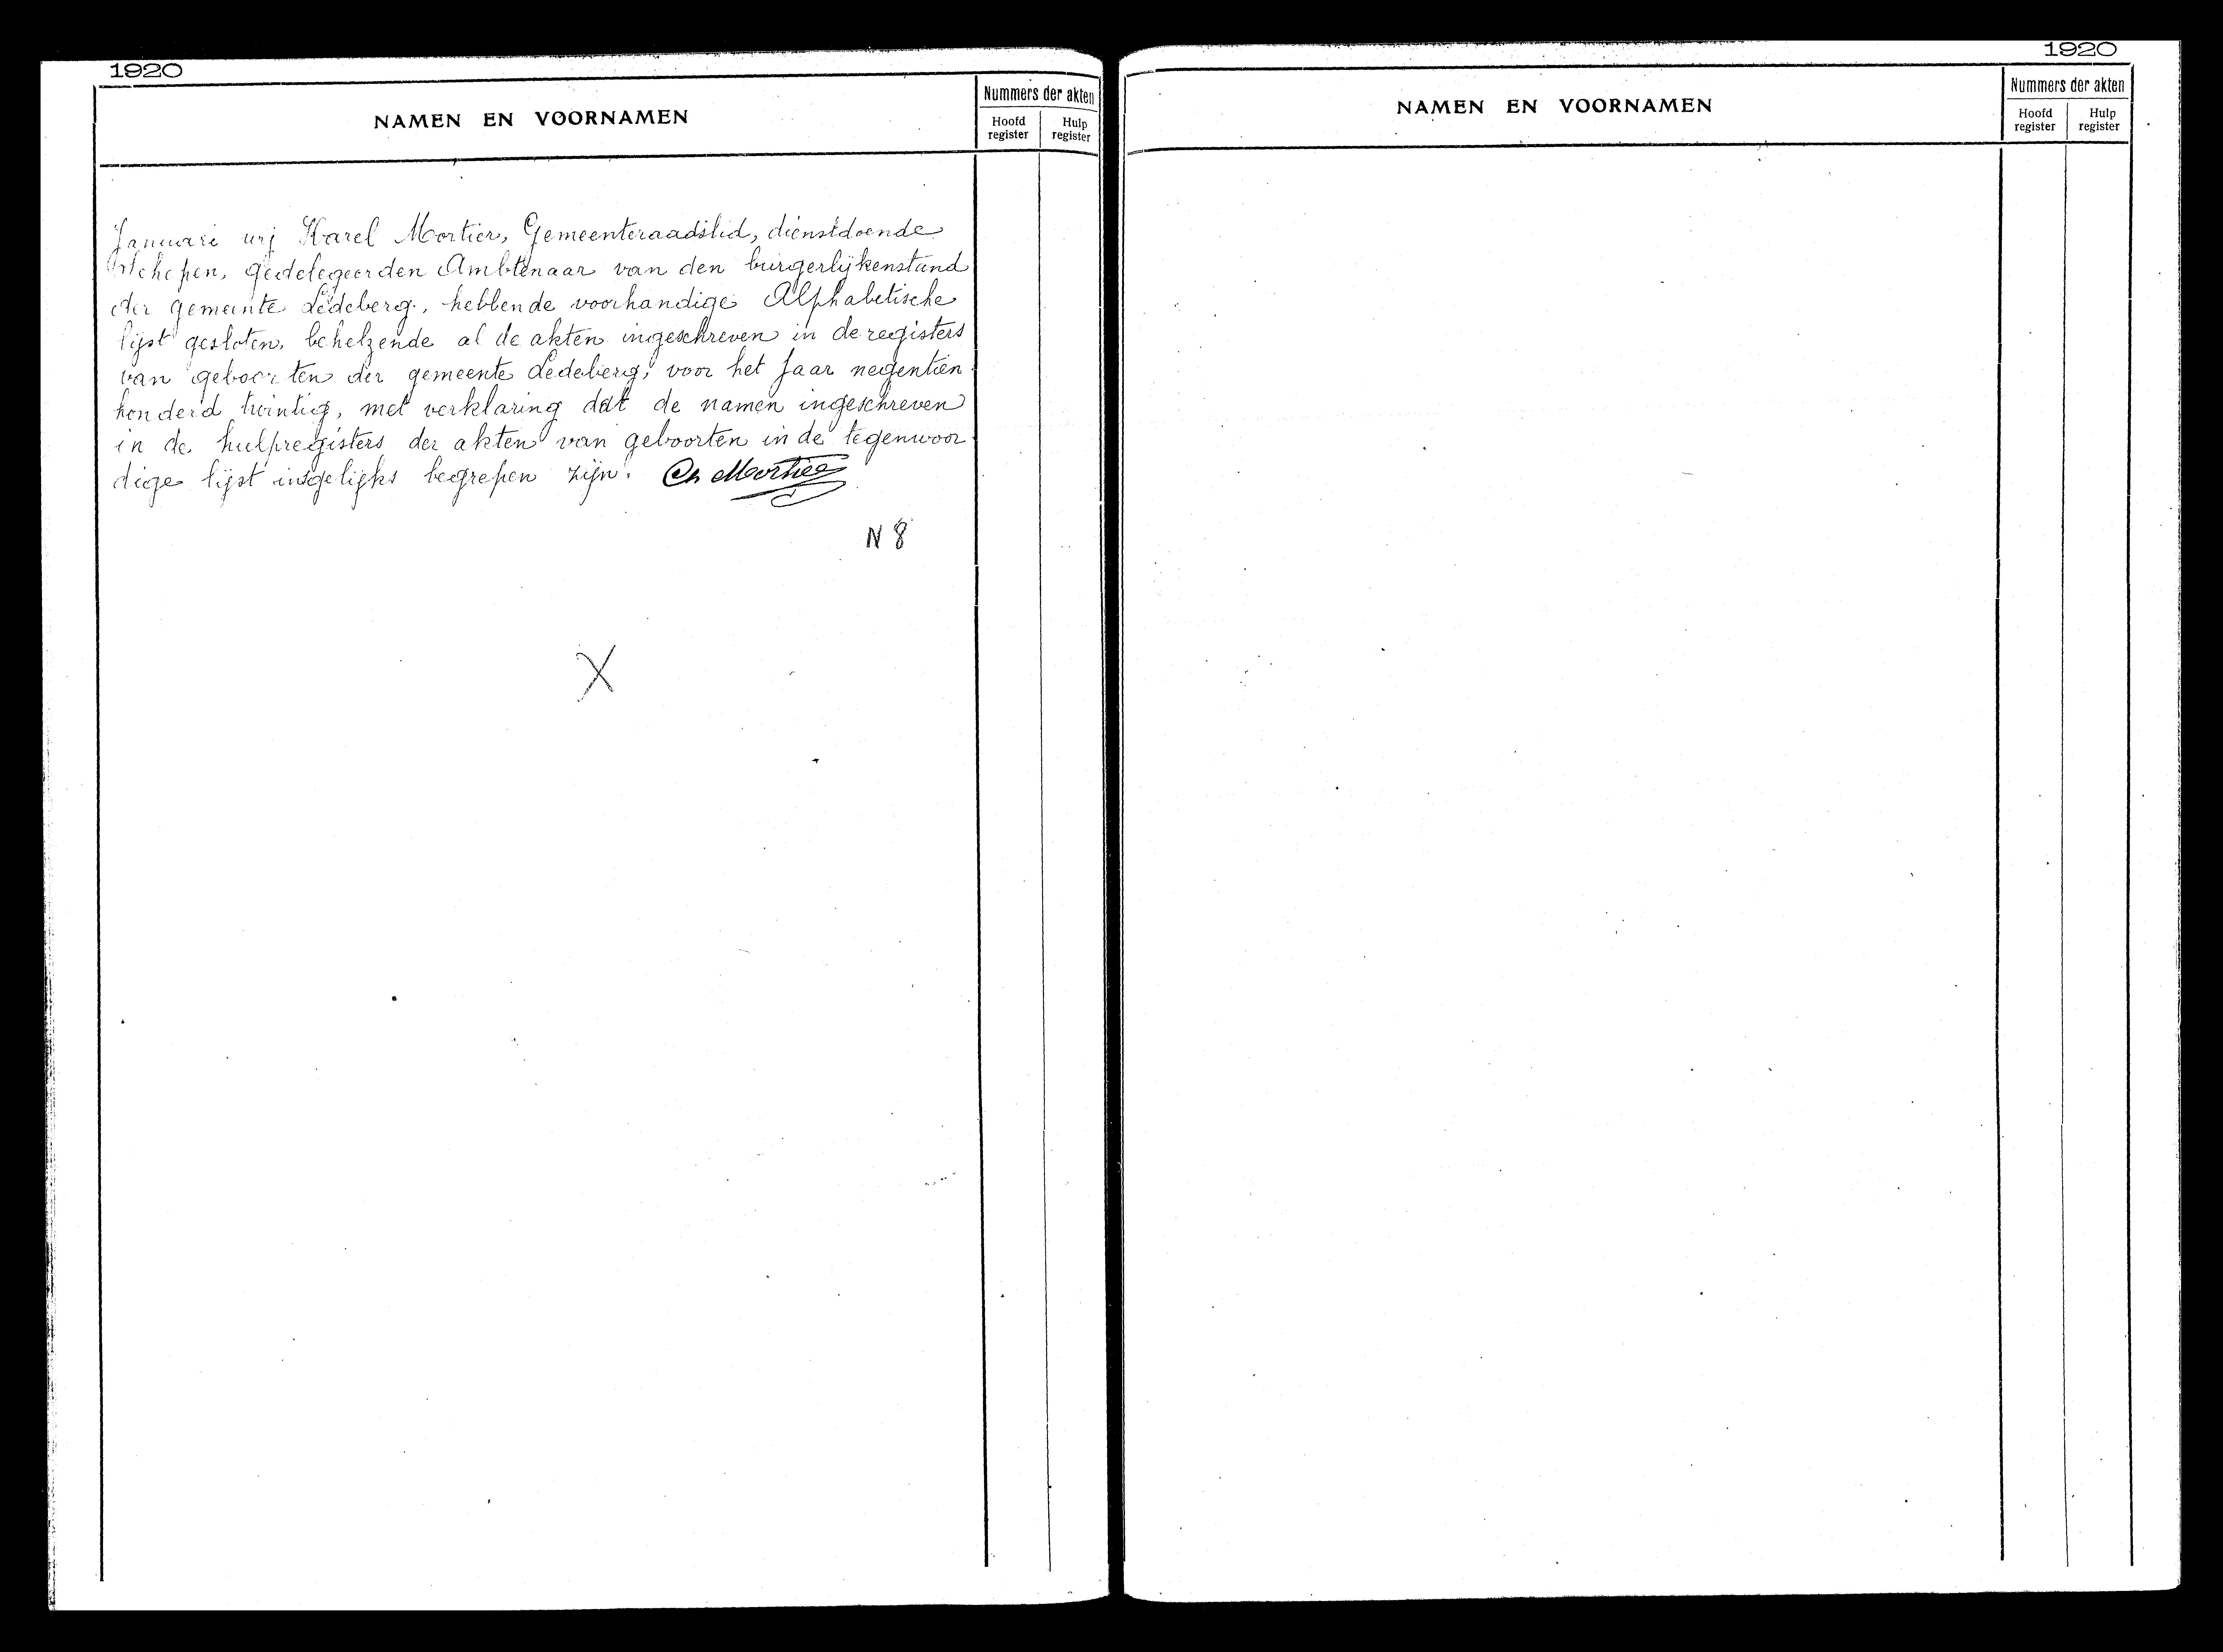 1920
NAMEN EN VOORNAMEN
Nummers der akten
Hoofd register
Hulp register
Januari wij Karel Mortier, Gemeenteraadslid, dienstdoende
Schepen, gedelegeerden Ambtenaar van den burgerlijkenstand
der gemeente Ledeberg, hebbende voorhandige Alphabetische
lijst gesloten, behelzende al de akten ingeschreven in de registers
van geboorten der gemeente Ledeberg, voor het jaar negentien
honderd twintig, met verklaring dat de namen ingeschreven
in de hulpregisters der akten van geboorten in de tegenwoor
dige lijst insgelijks begrepen zijn. Ch Mortier
N 8
X
1920
NAMEN EN VOORNAMEN
Nummers der akten
Hoofd register
Hulp register